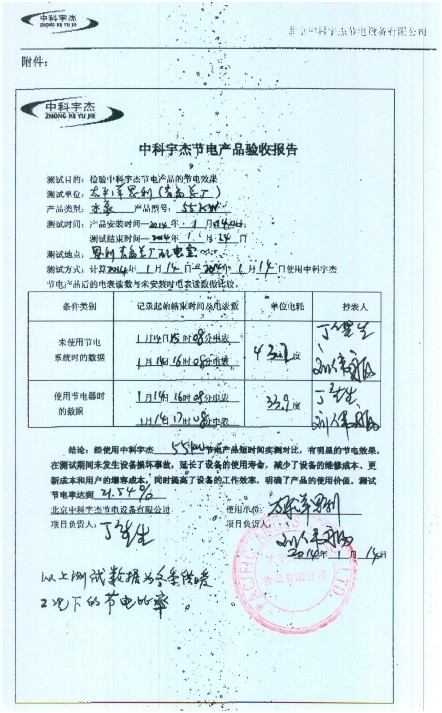 中科宇杰
ZHONG KE YU JIE
北京中科宇杰节电设备有限公司
附件：
中科宇杰
ZHONG KE YU JIE
中科宇杰节电产品验收报告
测试目的：检验中科宇杰节电产品的节电效果
测试单位：太平洋恩利（青岛总厂）
产品类别：水泵 产品型号：55KW
测试时间：产品安装时间—2014年1月14日
测试结束时间—2014年1月14日
测试地点：恩利青岛总厂配电室
测试方式：计算2014年1月14日—2014年1月14日使用中科宇杰
节电产品后的电表读数与未安装时电表读数做比较。
条件类别 记录起始结束时间及电表数 单位电耗 抄表人
未使用节电
系统时的数据
1月14日15时08分电表
1月14日16时08分电表
度
使用节电器时
的数据
1月14日16时08分电表
1月14日17时08分电表
33.9度
结论：经使用中科宇杰55KW节电产品短时间实测对比，有明显的节电效果，
在测试期间未发生设备损坏事故，延长了设备的使用寿命，减少了设备的维修成本、更
新成本和用户的增容成本，同时提高了设备的工作效率，明确了产品的使用价值。测试
节电率达到21.54%
北京中科宇杰节电设备有限公司 使用单位：太平洋恩利
项目负责人： 项目负责人：
2014年1月14日
以上测试数据为冬季供暖
工况下的节电的率